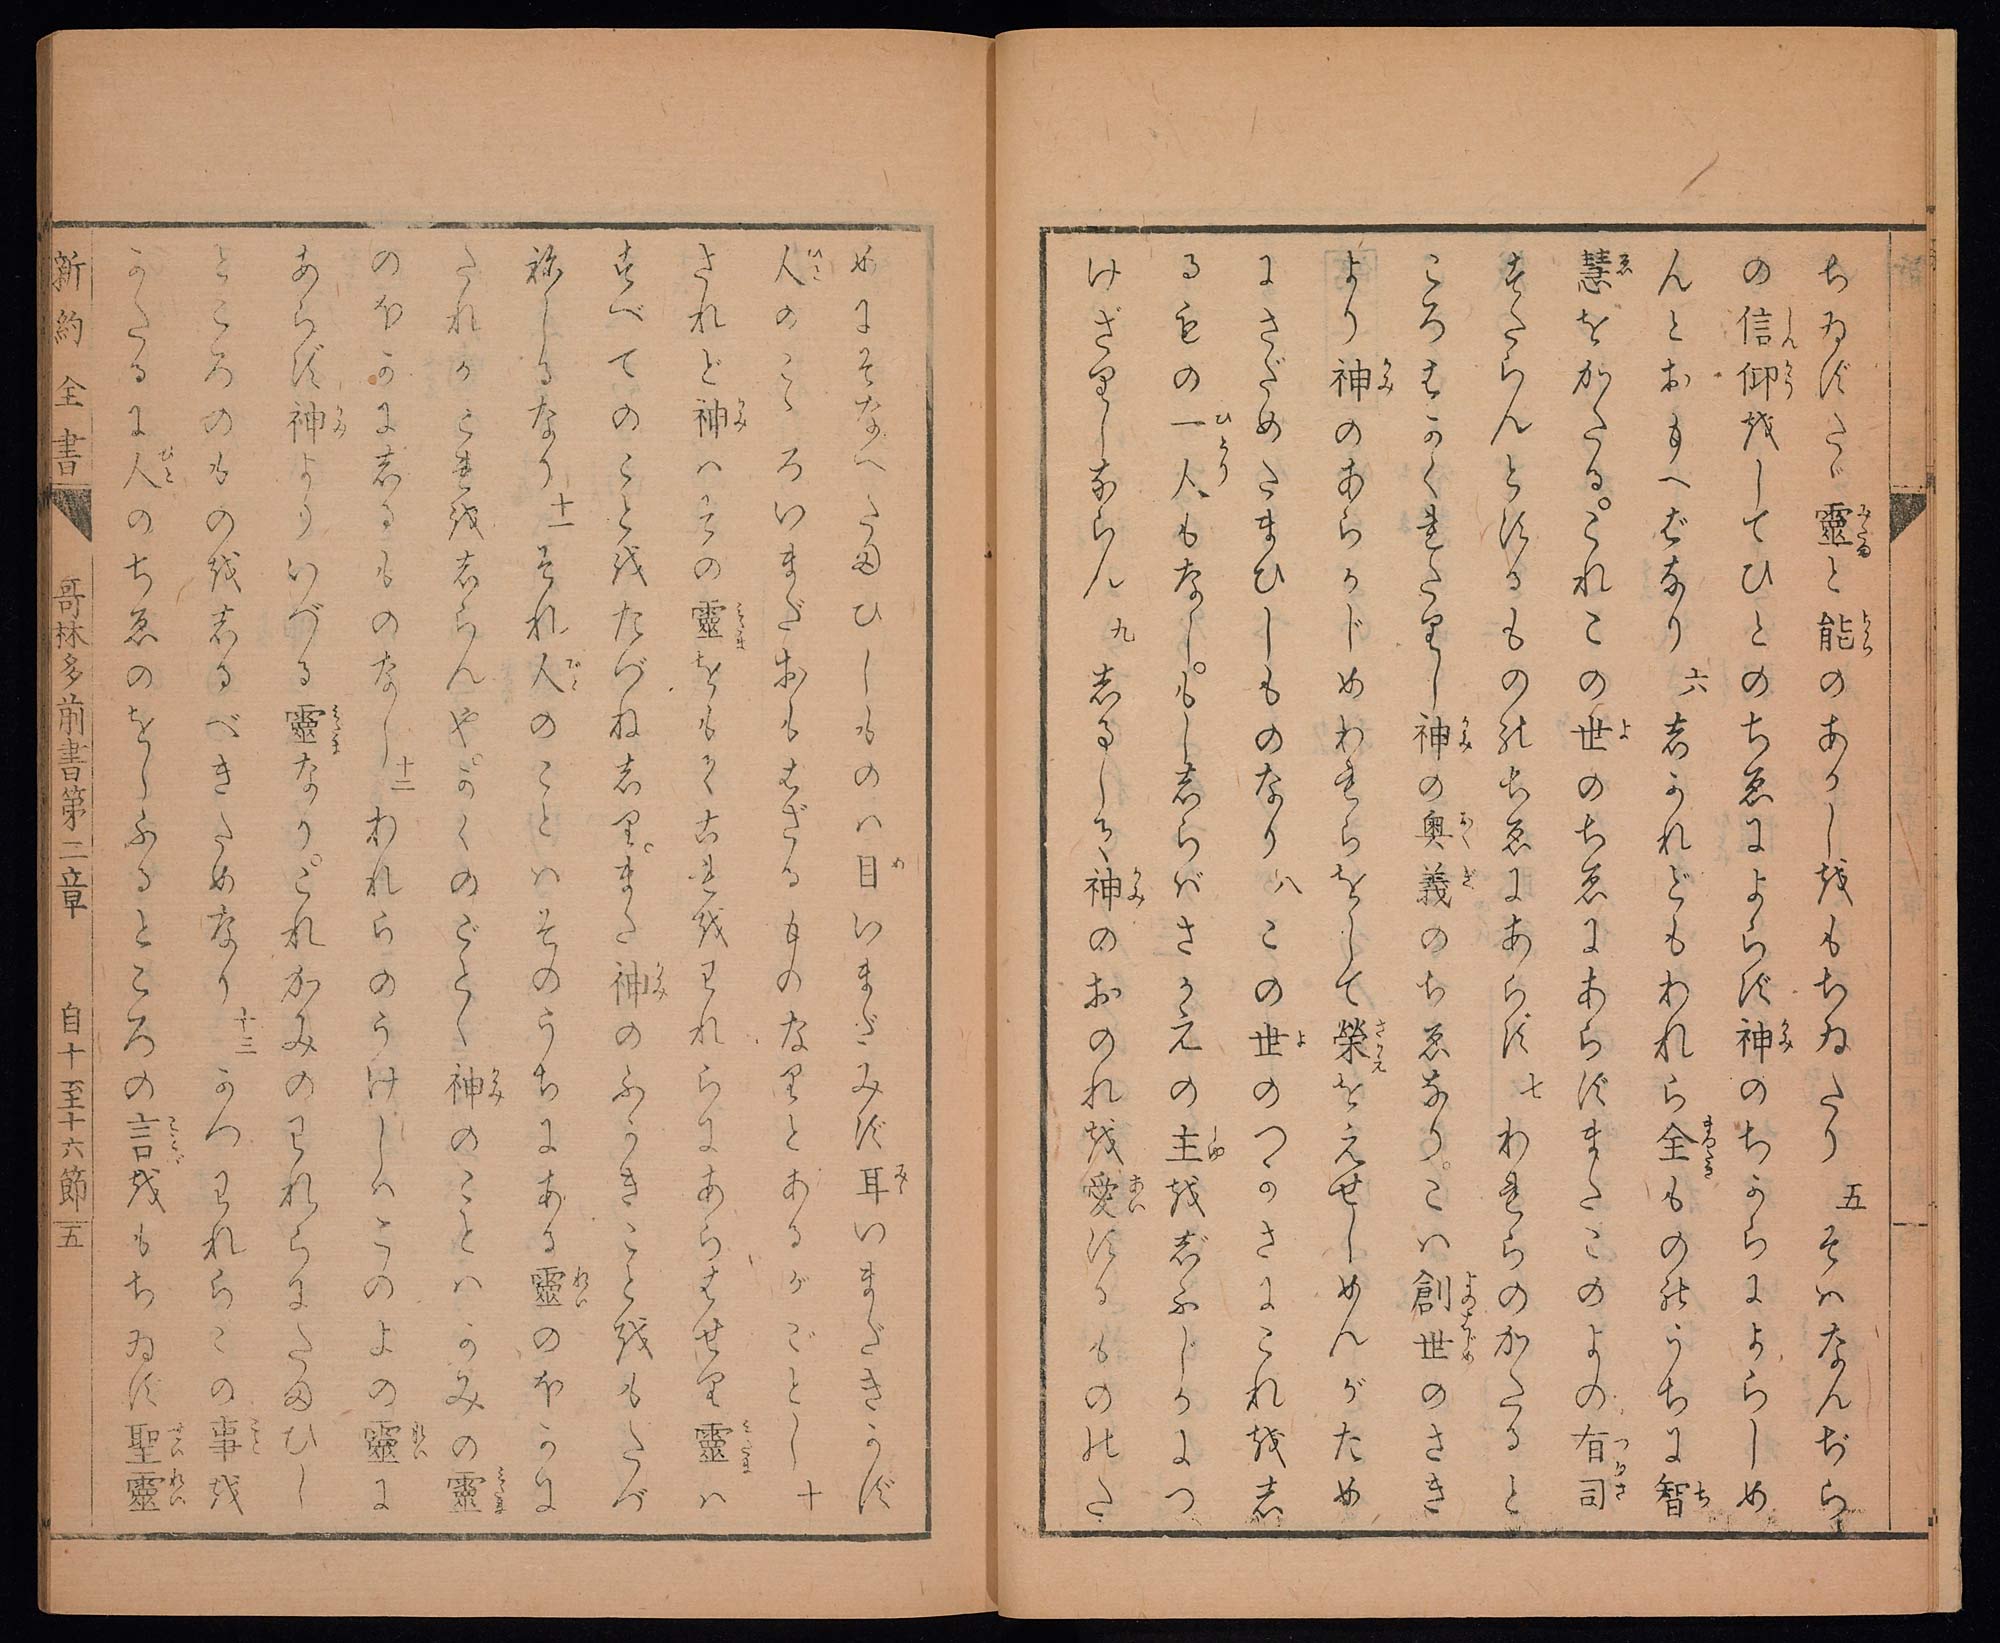 ちゐずたゞ靈と能のあかしをもちゐたり 五 そハなんぢら
の信仰をしてひとのちゑによらず神のちからによらしめ
んとおもへばなり 六 志かれどもわれら全もののうちに智
慧をかたる。これこの世のちゑにあらずまたこのよの有司
すたらんとするもののちゑにあらず 七 われらのかたると
ころはかくれたりし神の奥義のちゑなり。こハ創世のさき
より神のあらかじめわれらをして榮をえせしめんがため
にさだめたまひしものなり 八 この世のつかさにこれを志
るもの一人もなし。もし志らバさかえの主をじふじかにつ
けざりしならん 九 志るして神のおのれを愛するもののた
めにそなへたまひしものハ目いまだみず耳いまだきかず
人のこゝろいまだおもはざるものなりとあるがごとし 十
されど神ハその靈をもてこれをわれらにあらはせり靈ハ
すべてのことをたづね志り。また神のふかきことをもたづ
ねしるなり 十一 それ人のことハそのうちにある靈のほかに
たれかこれを志らんや。かくのごとく神のことハかみの靈
のほかに志るものなし 十二 われらのうけしハこのよの靈に
あらず神よりいづる靈なり。これかみのわれらにたまひし
ところのものを志るべきためなり 十三 かつわれらこの事を
かたるに人のちゑのをしふるところの言をもちゐず聖靈
新約全書 哥林多前書第二章 自十至十六節 五